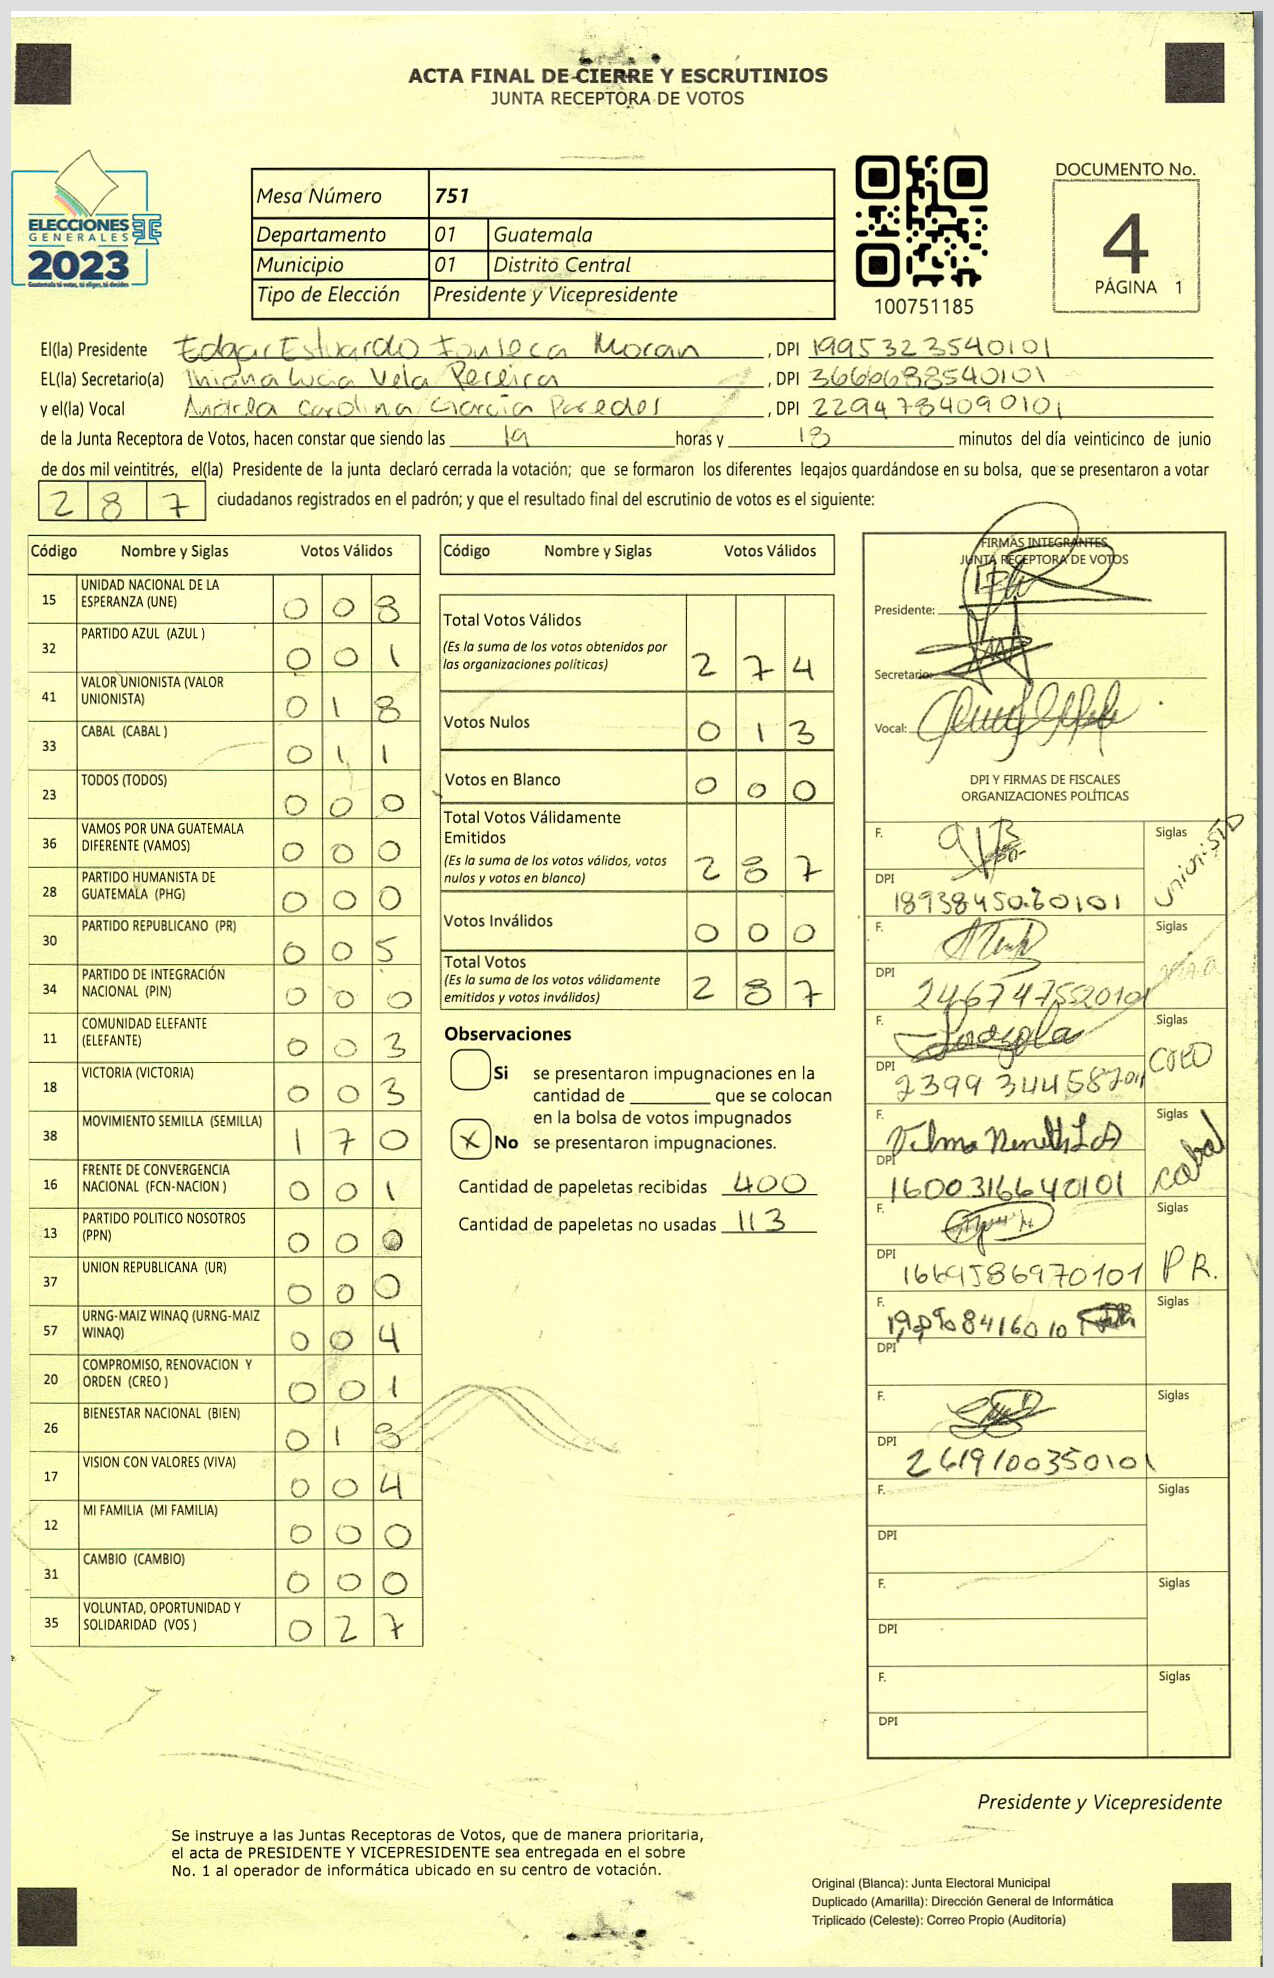 ACTA FINAL DE CIERRE Y ESCRUTINIOS
JUNTA RECEPTORA DE VOTOS
ELECCIONES
GENERALES
2023
Guatemala tú votas, tú eliges, tú decides
Mesa Número 751
Departamento 01 Guatemala
Municipio 01 Distrito Central
Tipo de Elección Presidente y Vicepresidente
100751185
DOCUMENTO No.
4
PÁGINA 1
El(la) Presidente Edgar Estuardo Fonseca Moran, DPI 1995323540101
EL(la) Secretario(a) Lucia Vela Pereira, DPI 3660688540101
y el(la) Vocal Andrea Carolina García Paredes, DPI 2294784090101
de la Junta Receptora de Votos, hacen constar que siendo las 19 horas y 18 minutos del día veinticinco de junio
de dos mil veintitrés, el(la) Presidente de la junta declaró cerrada la votación; que se formaron los diferentes legajos quardándose en su bolsa, que se presentaron a votar
287 ciudadanos registrados en el padrón; y que el resultado final del escrutinio de votos es el siguiente:
Código Nombre y Siglas Votos Válidos
15 UNIDAD NACIONAL DE LA ESPERANZA (UNE) 008
32 PARTIDO AZUL (AZUL ) 001
41 VALOR UNIONISTA (VALOR UNIONISTA) 018
33 CABAL (CABAL ) 011
23 TODOS (TODOS) 000
36 VAMOS POR UNA GUATEMALA DIFERENTE (VAMOS) 000
28 PARTIDO HUMANISTA DE GUATEMALA (PHG) 000
30 PARTIDO REPUBLICANO (PR) 005
34 PARTIDO DE INTEGRACIÓN NACIONAL (PIN) 000
11 COMUNIDAD ELEFANTE (ELEFANTE) 003
18 VICTORIA (VICTORIA) 003
38 MOVIMIENTO SEMILLA (SEMILLA) 170
16 FRENTE DE CONVERGENCIA NACIONAL (FCN-NACION ) 001
13 PARTIDO POLITICO NOSOTROS (PPN) 000
37 UNION REPUBLICANA (UR) 000
57 URNG-MAIZ WINAQ (URNG-MAIZ WINAQ) 004
20 COMPROMISO, RENOVACION Y ORDEN (CREO ) 001
26 BIENESTAR NACIONAL (BIEN) 018
17 VISION CON VALORES (VIVA) 004
12 MI FAMILIA (MI FAMILIA) 000
31 CAMBIO (CAMBIO) 000
35 VOLUNTAD, OPORTUNIDAD Y SOLIDARIDAD (VOS ) 027
Código Nombre y Siglas Votos Válidos
Total Votos Válidos 274
(Es la suma de los votos obtenidos por
las organizaciones políticas)
Votos Nulos 013
Votos en Blanco 000
Total Votos Válidamente
Emitidos 287
(Es la suma de los votos válidos, votos
nulos y votos en blanco)
Votos Inválidos 000
Total Votos 287
(Es la suma de los votos válidamente
emitidos y votos inválidos)
Observaciones
Si se presentaron impugnaciones en la
cantidad de ________ que se colocan
en la bolsa de votos impugnados
X No se presentaron impugnaciones.
Cantidad de papeletas recibidas 400
Cantidad de papeletas no usadas 113
FIRMAS INTEGRANTES
JUNTA RECEPTORA DE VOTOS
Presidente:
Secretario:
Vocal:
DPI Y FIRMAS DE FISCALES
ORGANIZACIONES POLÍTICAS
F. Siglas unionista
DPI 1893845020101
F. Siglas
DPI 2467475520101
F. Siglas CREO
DPI 2399344587011
F. Siglas cabal
DPI 1600316640101
F. Siglas P.R.
DPI 1669586970101
F. Siglas
DPI
F. Siglas
DPI 2619100350101
F. Siglas
DPI
F. Siglas
DPI
F. Siglas
DPI
Presidente y Vicepresidente
Se instruye a las Juntas Receptoras de Votos, que de manera prioritaria,
el acta de PRESIDENTE Y VICEPRESIDENTE sea entregada en el sobre
No. 1 al operador de informática ubicado en su centro de votación.
Original (Blanca): Junta Electoral Municipal
Duplicado (Amarilla): Dirección General de Informática
Triplicado (Celeste): Correo Propio (Auditoría)